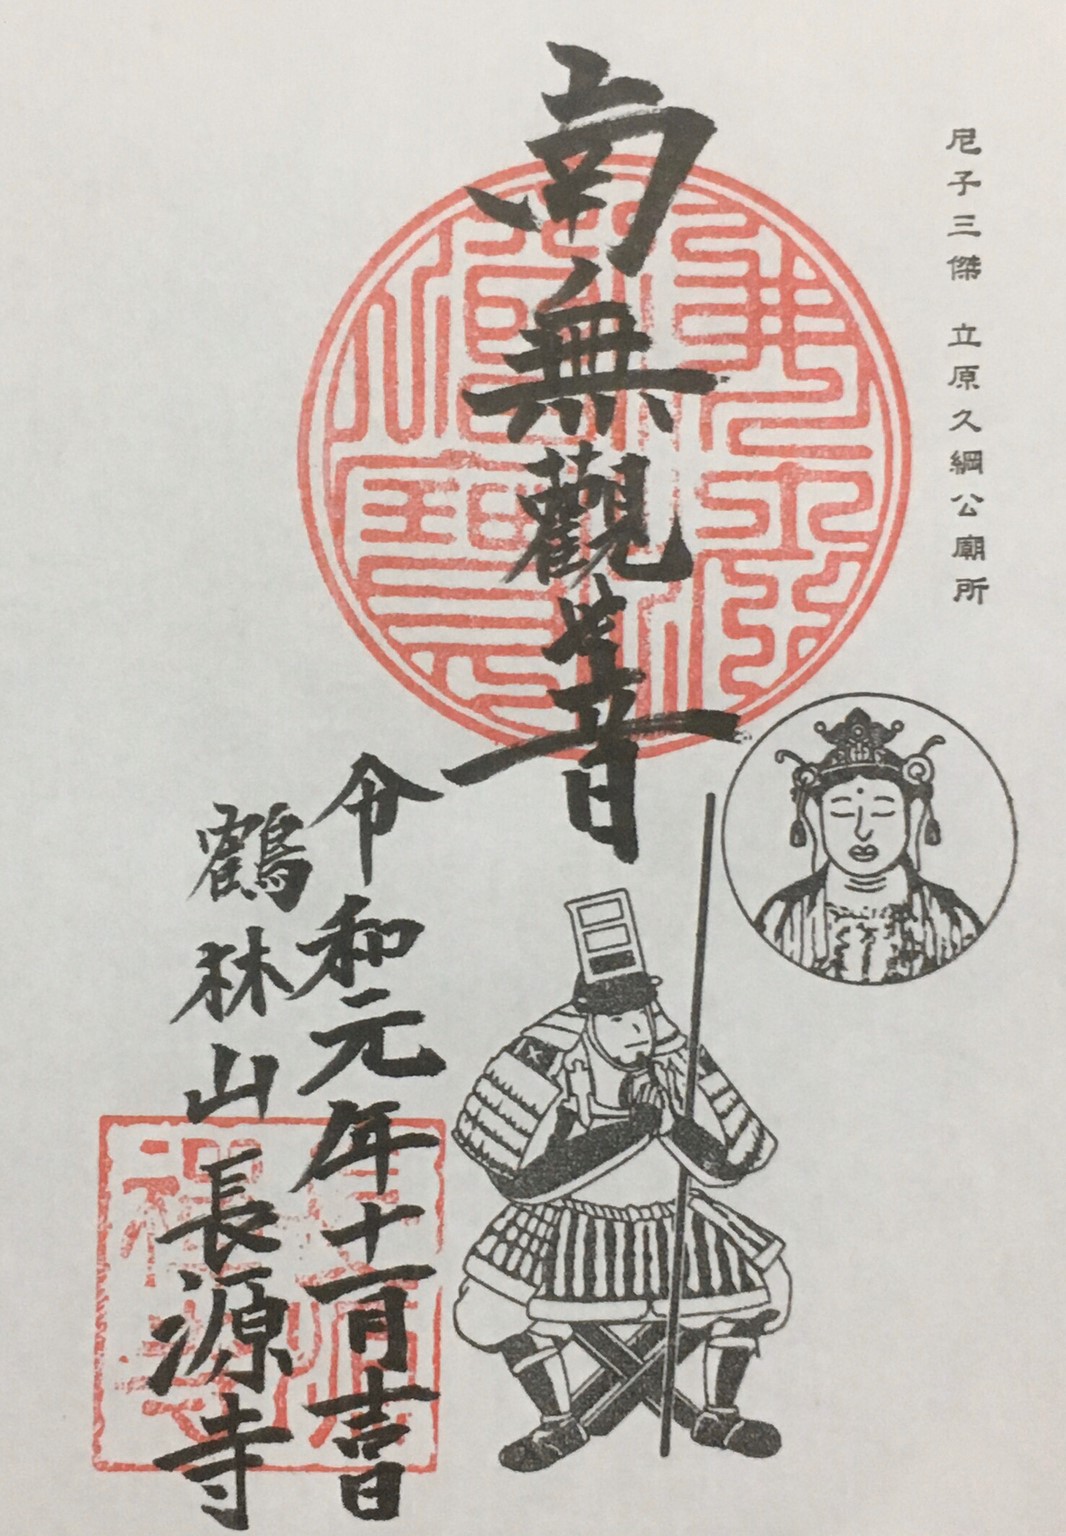 尼子三傑 立原久綱公廟所
南無觀世音
令和元年十一月吉日
鶴林山長源寺